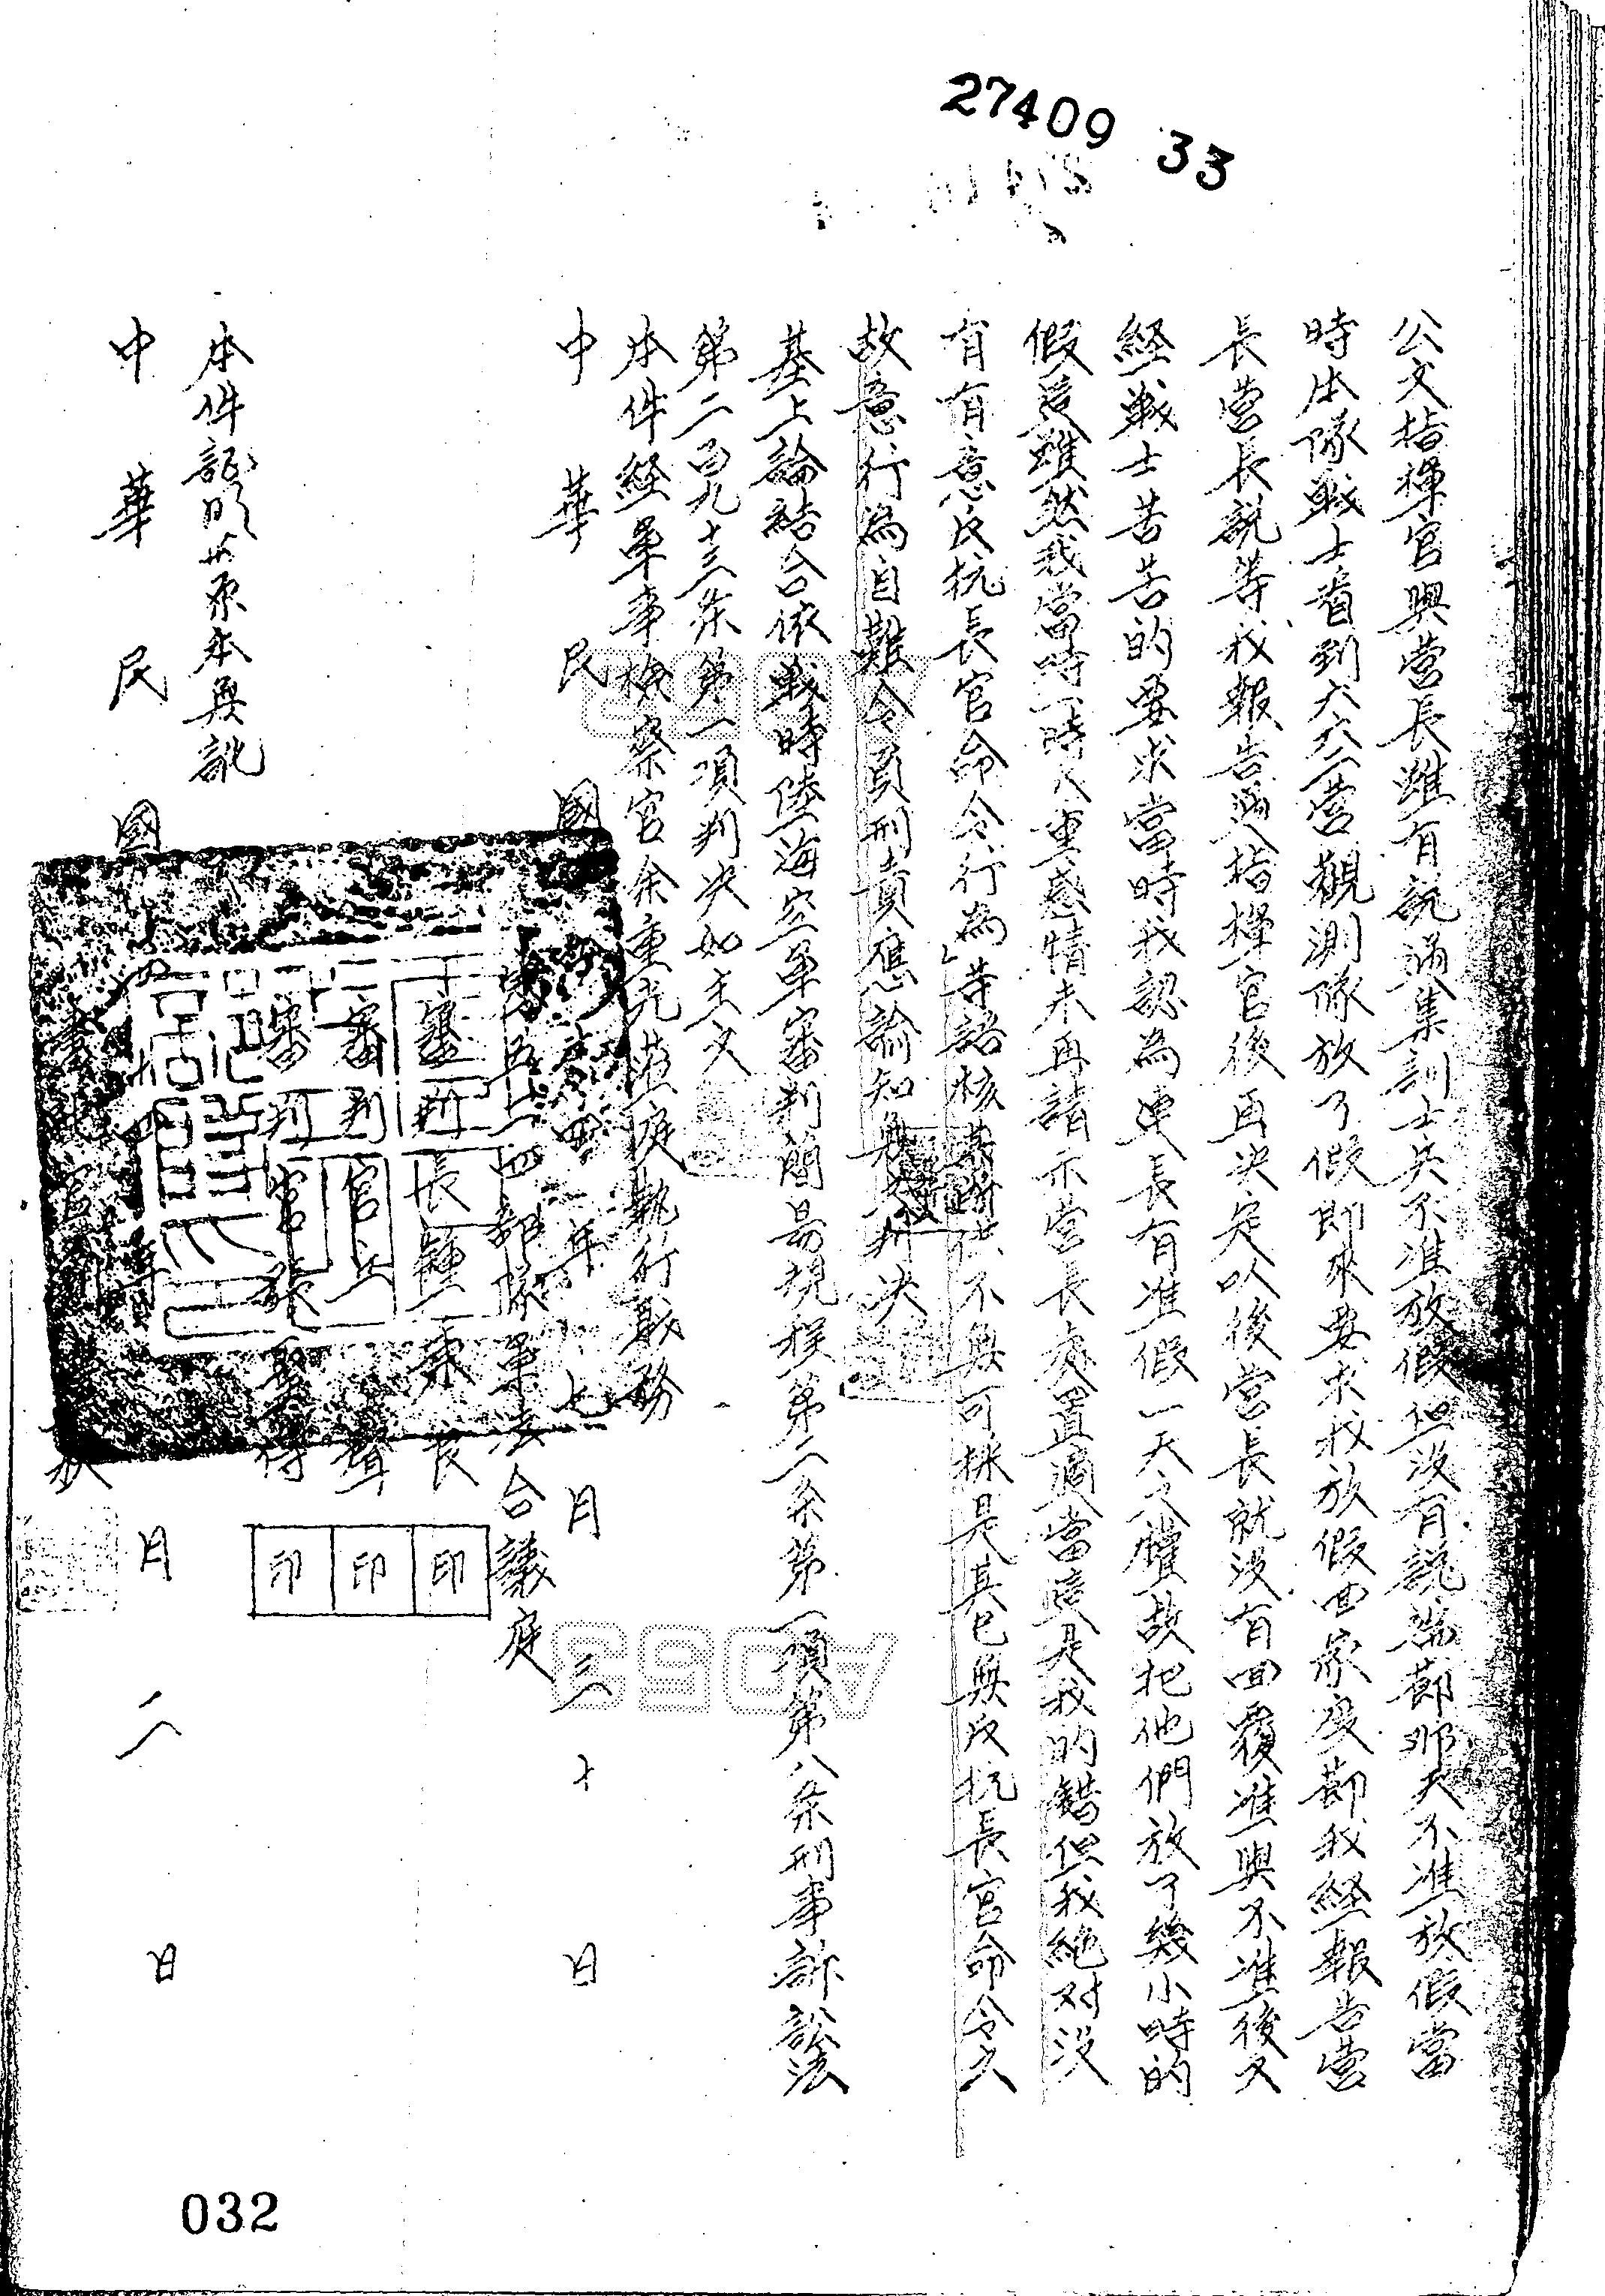 27409 33
公文指揮官與營長雖有說過集訓士兵不准放假但没有說端節那天不准放假當
時本隊戰士看到六六六營觀測隊放了假即來要求我放假回家度節我經報告營
長營長說等我報告過指揮官後再決定以後營長就没有回覆準與不準後又
經戰士苦苦的要求當時我認為連長有准假一天之權故把他們放了幾小時的
假這雖然我當時一時人重感情未再請示營長處置過當這是我的錯但我絕对没
有有意反抗長官命令行為等語核其所供不無可採是其已無反抗長官命令之
故意行為自難令負刑責應諭知無罪判決
基上論結合依戰時陸海空軍審判簡易規程第二條第一項第八條刑事訴訟法
第二百九十三條第一項判決如主文
本件經軍事檢察官余重光蒞庭執行職務
中華民國四年七月三十日
第五二四部隊軍法合議庭
審判長鍾秉良 印
審判官 聲 印
審判官張聖傳 印
本件證明與原本無訛
中華民國 年 月二日
書記官
032
AD53